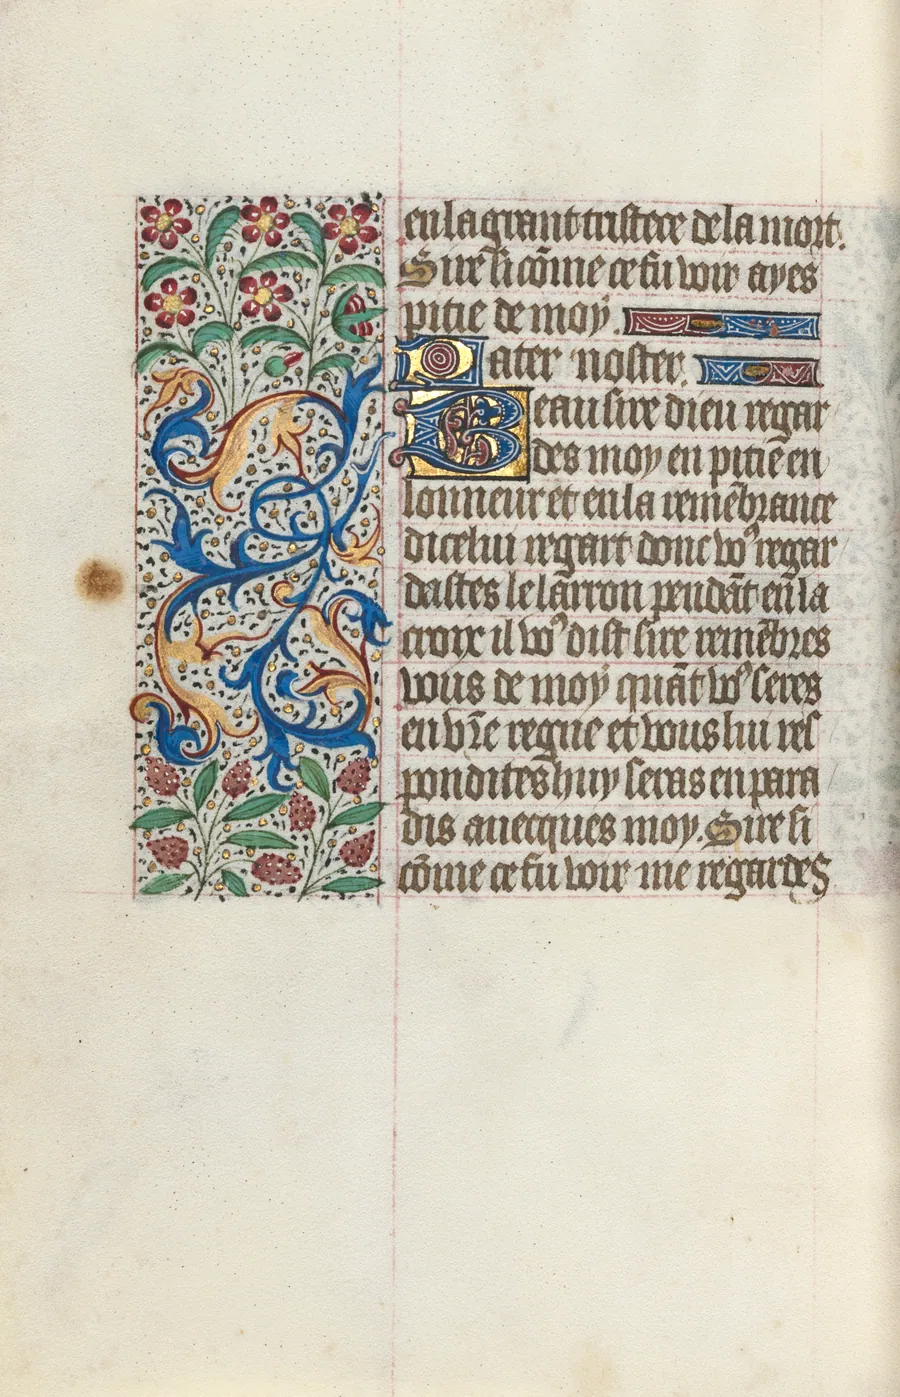 en la grant tristere de la mort.
Sire si cōme ce fu voir ayes
pitie de moy.
Pater noster.
Beau sire dieu regar
des moy en pitie en
lonneur et en la remēbrance
dicelui regart donc voꝰ regar
dastes le larron pendāt en la
croix il voꝰ dist sire remēbres
vous de moy quāt voꝰ seres
en vr̄e regne et vous lui res
pondites huy seras en para
dis auecques moy. Sire si
cōme ce fu voir me regardes